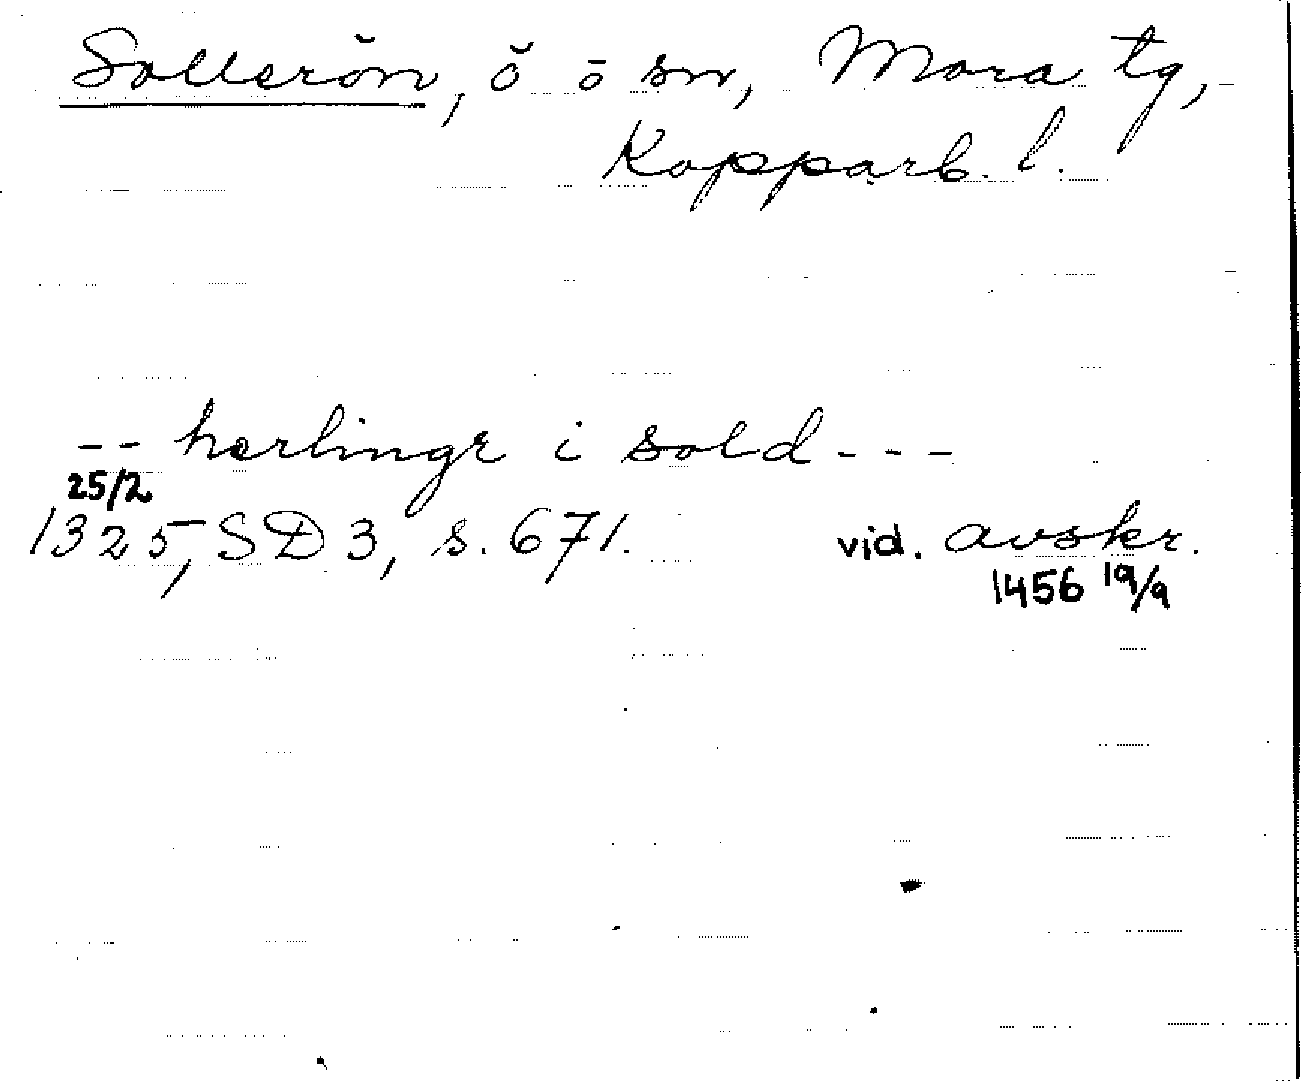 Sollerön, ö o sn, Mora tg,
Kopparb. l.
-- herlingr i sold ---
25/2
1325, SD 3, s. 671. vid. avskr.
1456 19/9